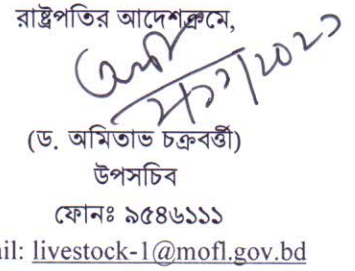 রাষ্ট্রপতির আদেশক্রমে,
(ড. অমিতাভ চক্রবর্ত্তী)
উপসচিব
ফোনঃ ৯৫৪৬১১১
ail: livestock-1@mofl.gov.bd